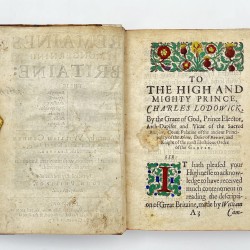 TO
THE HIGH AND
MIGHTY PRINCE,
CHARLES LODOWICK,
By the Grace of God, Prince Elector,
Arch-Dapifer and Vicar of the Sacred
Count Palatine of the ancient Princi-
pality of the Rhine, Duke of Bavier, and
Knight of the most Illustrious Order
of the GARTER.
SIR:
IT hath pleased your
Highnesse to acknow-
ledge to have received
much contentment in
reading the descripti-
on of Great Britaine, made by William
A3 Cam-